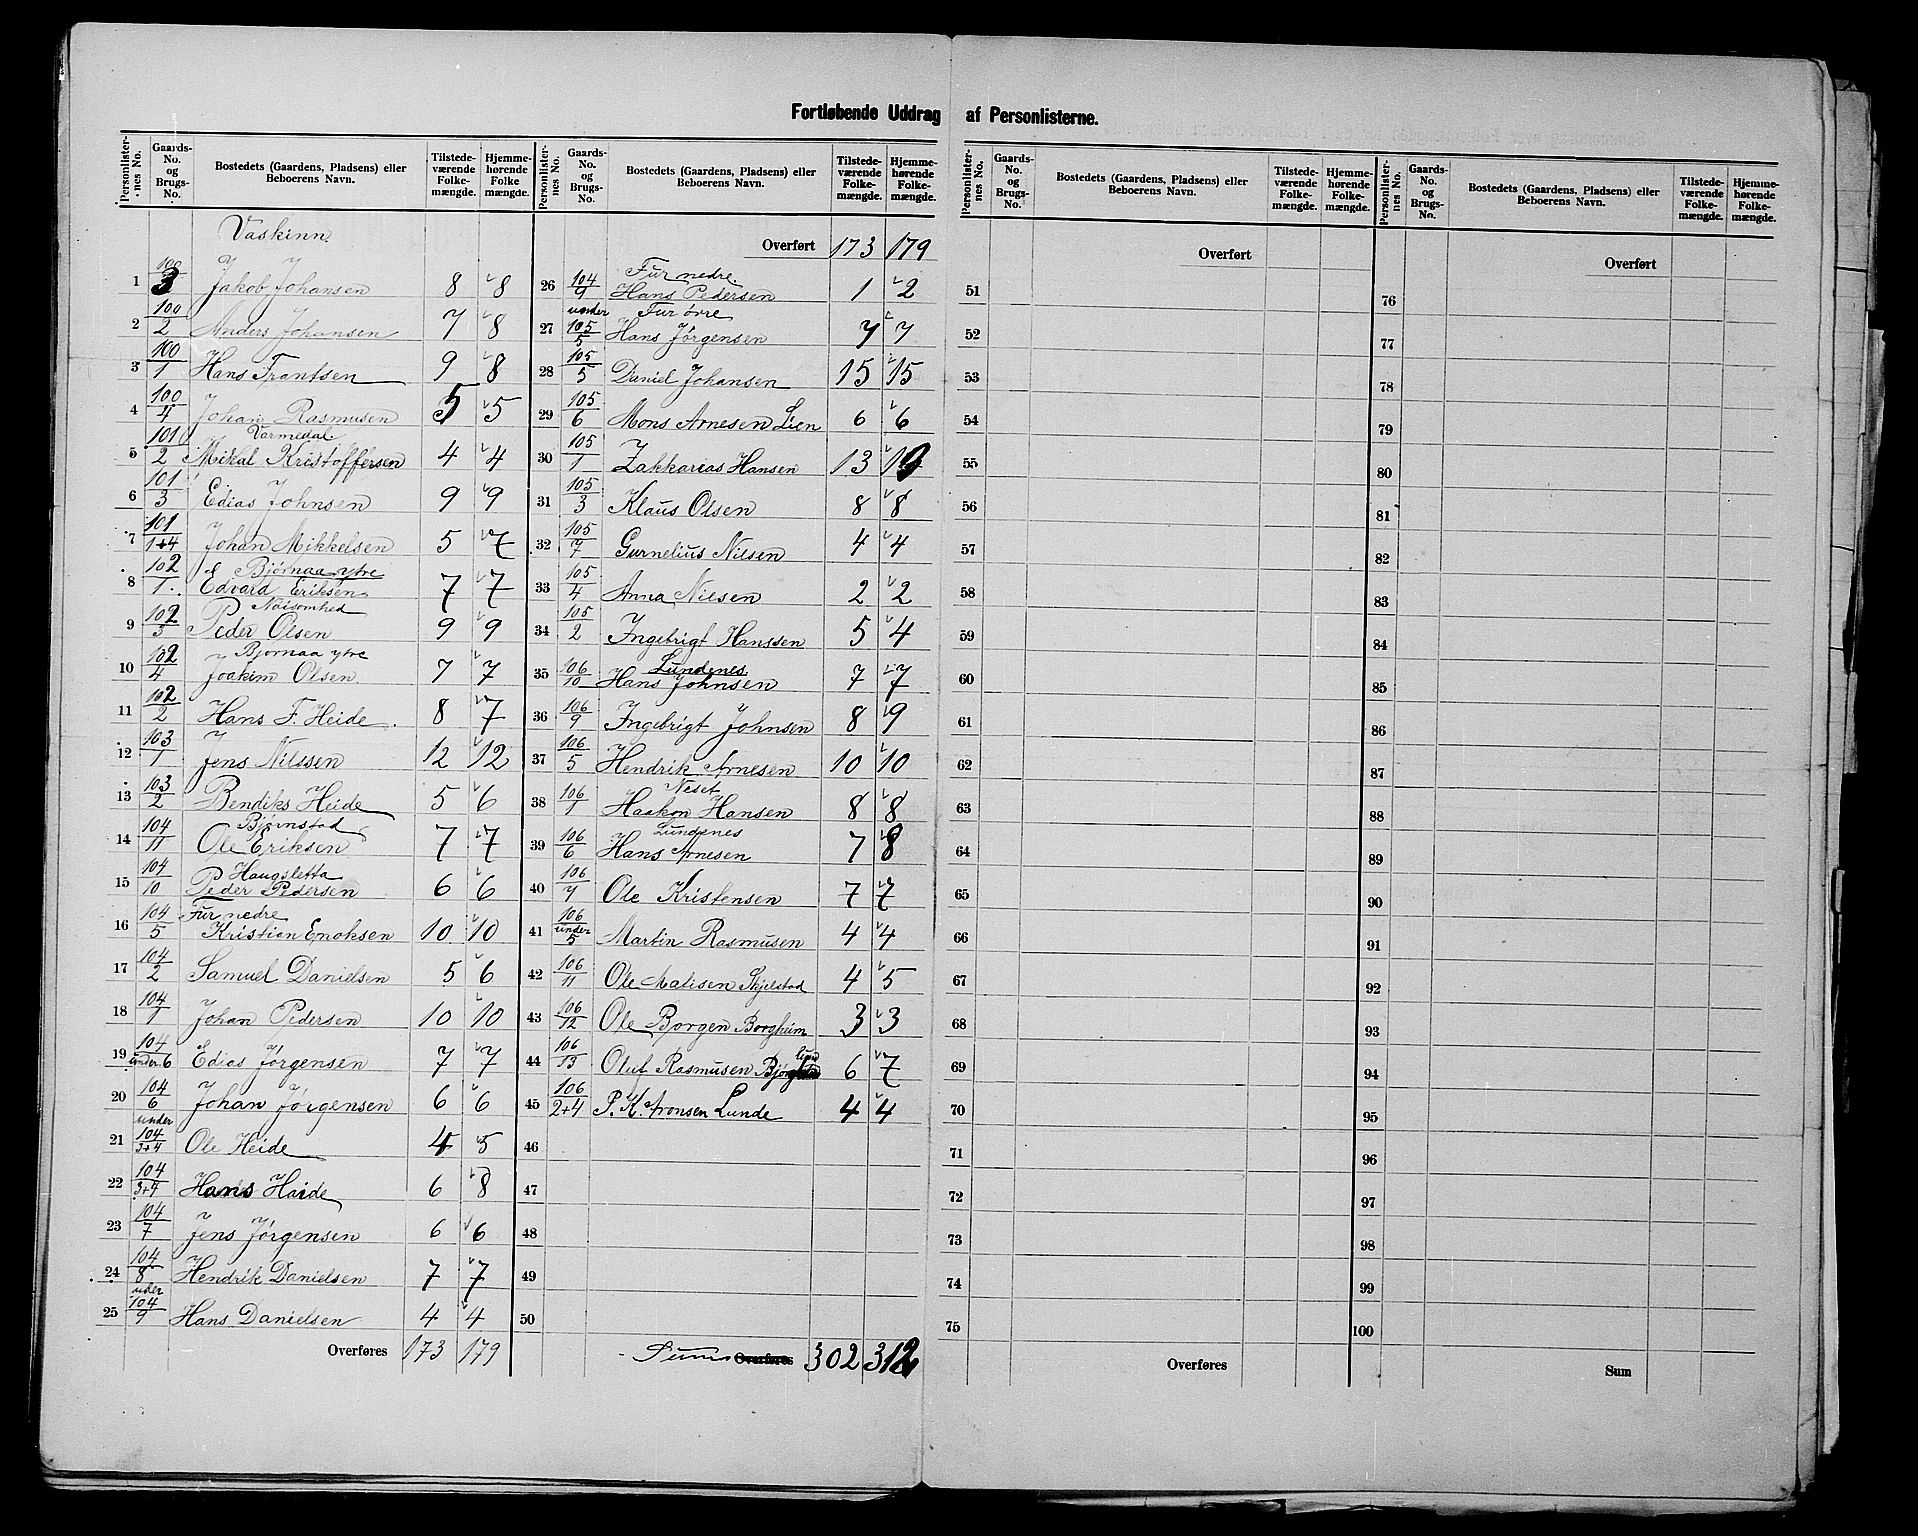 Fortløbende Uddrag af Personlisterne.
Personlisternes No. | Gaards-No. og Brugs-No. | Bostedets (Gaardens, Pladsens) eller Beboerens Navn. | Tilstedeværende Folkemængde. | Hjemmehørende Folkemængde.
Vaskinn
1 100/3 Jakob Johansen 8 8
2 100/2 Anders Johansen 7 8
3 100/1 Hans Frantsen 9 8
4 100/4 Johan Rasmusen 5 5
Varmedal
5 101/2 Mikal Kristoffersen 4 4
6 101/3 Edias Johnsen 9 9
7 101/1+4 Johan Mikkelsen 5 7
Bjørnaa ytre
8 102/1 Edvard Eriksen 7 7
Nøisomhed
9 102/3 Peder Olsen 9 9
Bjørnaa ytre
10 102/4 Joakim Olsen 7 7
11 102/2 Hans F. Heide 8 7
12 103/1 Jens Nilssen 12 12
13 103/2 Bendiks Heide 5 6
Bjørnstad
14 104/11 Ole Eriksen 7 7
Haugsletta
15 104/10 Peder Pedersen 6 6
Fur nedre
16 104/5 Kristian Enoksen 10 10
17 104/2 Samuel Danielsen 5 6
18 104/1 Johan Pedersen 10 10
19 104/under 6 Edias Jørgensen 7 7
20 104/6 Johan Jørgensen 6 6
21 under 104/3+4 Ole Heide 4 5
22 104/3+4 Hans Haide 6 8
23 104/7 Jens Jørgensen 6 6
24 104/8 Hendrik Danielsen 7 7
25 under 104/9 Hans Danielsen 4 4
Overføres 173 179
Personlisternes No. | Gaards-No. og Brugs-No. | Bostedets (Gaardens, Pladsens) eller Beboerens Navn. | Tilstedeværende Folkemængde. | Hjemmehørende Folkemængde.
Overført 173 179
Fur nedre
26 104/9 Hans Pedersen 1 2
Fur øvre
27 under 105/5 Hans Jørgensen 7 7
28 105/5 Daniel Johansen 15 15
29 105/6 Mons Arnesen Lien 6 6
30 105/1 Zakkarias Hansen 13 13
31 105/3 Klaus Olsen 8 8
32 105/7 Gurnelius Nilsen 4 4
33 105/4 Anna Nilsen 2 2
34 105/2 Ingebrigt Hanssen 5 4
Lundenes
35 106/10 Hans Johnsen 7 7
36 106/9 Ingebrigt Johnsen 8 9
37 106/5 Hendrik Arnesen 10 10
Neset
38 106/1 Haakon Hansen 8 8
Lundenes
39 106/6 Hans Arnesen 7 8
40 106/7 Ole Kristensen 7 7
41 106/under 5 Martin Rasmusen 4 4
42 106/11 Ole Matisen Skjelstad 4 5
43 106/12 Ole Borgen Borgheim 3 3
44 106/13 Oluf Rasmusen 6 7
45 106/2+4 P. K. Aronsen Lunde 4 4
46
47
48
49
50
Sum Overføres 302 312
Personlisternes No. | Gaards-No. og Brugs-No. | Bostedets (Gaardens, Pladsens) eller Beboerens Navn. | Tilstedeværende Folkemængde. | Hjemmehørende Folkemængde.
Overført
51
52
53
54
55
56
57
58
59
60
61
62
63
64
65
66
67
68
69
70
71
72
73
74
75
Overføres
Personlisternes No. | Gaards-No. og Brugs-No. | Bostedets (Gaardens, Pladsens) eller Beboerens Navn. | Tilstedeværende Folkemængde. | Hjemmehørende Folkemængde.
Overført
76
77
78
79
80
81
82
83
84
85
86
87
88
89
90
91
92
93
94
95
96
97
98
99
100
Sum